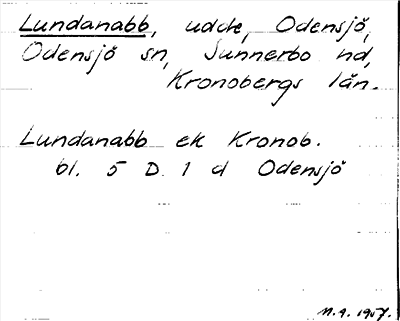 Lundanabb, udde, Odensjö,
Odensjö sn, Sunnerbo hd,
Kronobergs län.
Lundanabb ek Kronob.
bl. 5 D 1 d Odensjö